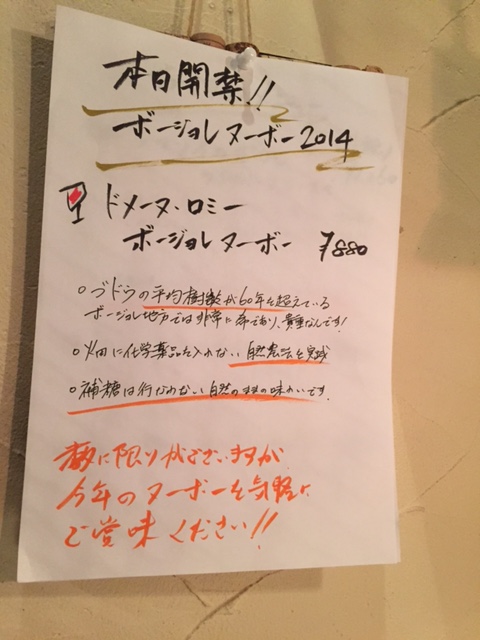 本日開禁!!
ボージョレヌーボー2014
ドメーヌ・ロミー
ボージョレヌーボー ¥880
○ブドウの平均樹齢が60年を超えている
ボージョレ地方では非常に希であり、貴重なんです!
○畑に化学薬品を入れない自然農法を実践
○補糖は行なわない自然のままの味わいです.
数に限りがございますが
今年のヌーボーを気軽に
ご賞味ください!!